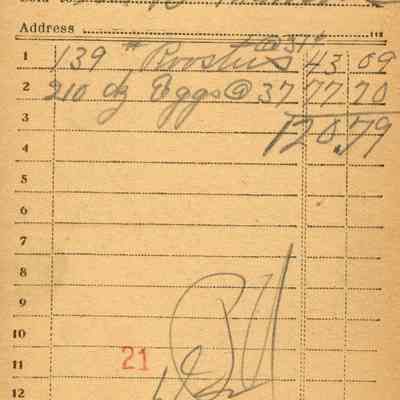 Sold to
Address 112
1 139 # Roosters @ 31¢ 43 09
2 210 dz Eggs @ 37 77 70
3 120.79
4
5
6
7
8
9
10
21
11
12